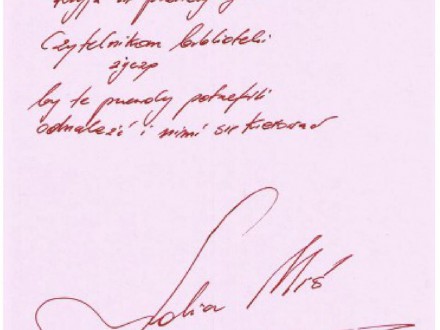 Czytelnikom biblioteki
życzę
by te prawdy potrafili
odnaleźć i nimi się kierować
Zofia